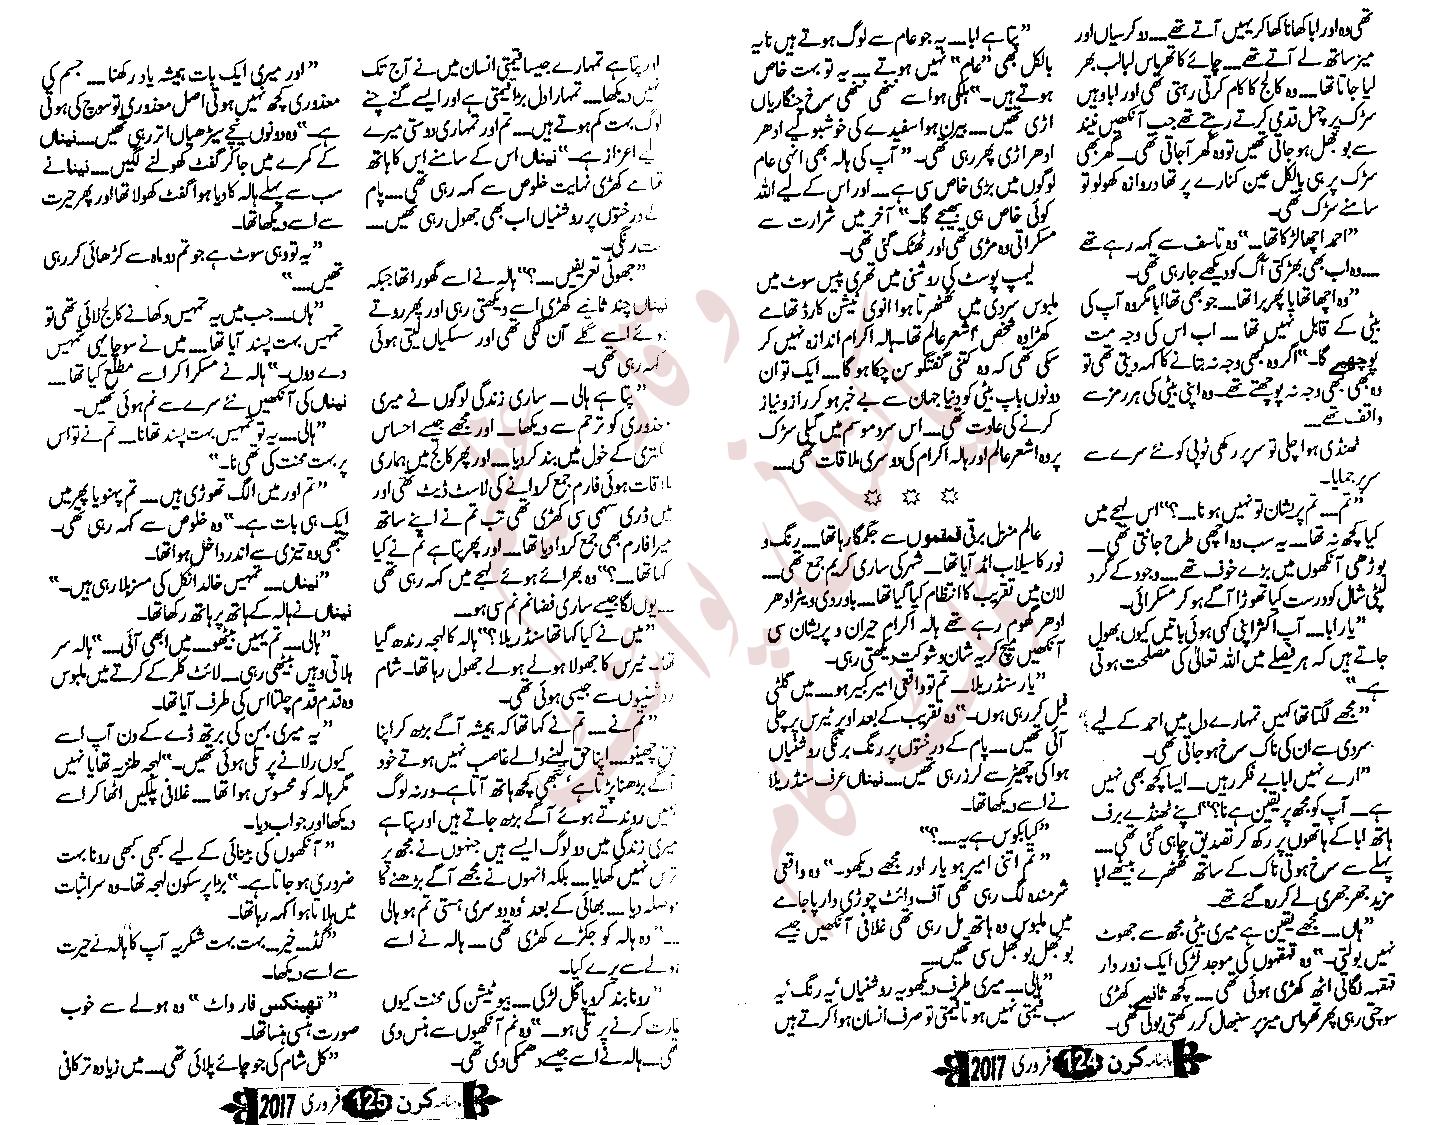 تھی وہ اور ابا کھانا کھا کر یہیں آتے تھے۔۔۔ دو کرسیاں اور
میز ساتھ لے آتے تھے۔۔۔ چائے کا تھرماس لبالب بھر
لیا جاتا تھا۔۔۔ وہ کالج کا کام کرتی رہتی تھی اور ابا وہیں
سڑک پر چہل قدمی کرتے رہتے تھے جب آنکھیں نیند
سے بوجھل ہو جاتی تھیں تو وہ گھر آ جاتی تھی۔ گھر بھی
سڑک پر ہی بالکل عین کنارے پر تھا دروازہ کھولو تو
سامنے سڑک تھی۔
"احمد اچھا لڑکا تھا۔" وہ تاسف سے کہہ رہے تھے
۔۔۔ وہ اب بھی بھڑکتی آگ کو دیکھے جا رہی تھی۔
"وہ اچھا تھا یا پھر برا تھا۔۔۔ جو بھی تھا ابا مگر وہ آپ کی
بیٹی کے قابل نہیں تھا۔۔۔ اب اس کی وجہ مت
پوچھیے گا۔" اگر وہ بھی وجہ نہ بتانے کا کہہ دیتی تھی تو
وہ بھی کبھی وجہ نہ پوچھتے تھے۔ وہ اپنی بیٹی کی ہر رمز سے
واقف تھے۔۔۔
ٹھنڈی ہوا چلی تو سر پر رکھی ٹوپی کو نئے سرے سے
سر پر جمایا۔
"تم۔۔۔ تم پریشان تو نہیں ہو نا۔۔۔؟" اس لہجے میں
کیا کچھ نہ تھا۔۔۔ یہ سب وہ اچھی طرح جانتی تھی۔۔۔
بوڑھی آنکھوں میں بڑے خوف تھے۔۔۔ وجود کے گرد
لپٹی شال کو درست کیا تھوڑا آگے ہو کر مسکرائی۔
"یار ابا۔۔۔ آپ اکثر اپنی کہی ہوئی باتیں کیوں بھول
جاتے ہیں کہ ہر فیصلے میں اللہ تعالیٰ کی مصلحت ہوتی
ہے۔"
"مجھے لگتا تھا کہیں تمہارے دل میں احمد کے لیے؟"
سردی سے ان کی ناک سرخ ہو جاتی تھی۔
"ارے نہیں ابا بے فکر رہیں۔۔۔ ایسا کچھ بھی نہیں
ہے۔۔۔ آپ کو مجھ پر یقین ہے نا؟" اپنے ٹھنڈے برف
ہاتھ ابا کے ہاتھوں پر رکھ کر تصدیق چاہی گئی تھی۔۔۔
پہلے سے سرخ ہوتی ناک کے ساتھ ٹھٹھرے بیٹھے ابا
مزید جھرجھری لے کر رہ گئے تھے۔
"ہاں۔۔۔ مجھے یقین ہے میری بیٹی مجھ سے جھوٹ
نہیں بولتی۔" وہ قہقہوں کی موجد لڑکی ایک زور دار
قہقہہ لگاتی اٹھ کھڑی ہوئی تھی۔۔۔ کچھ ثانیے کھڑی
سوچتی رہی پھر تھرماس میز پر سنبھال کر رکھتی بولی تھی۔
"پتا ہے ابا۔۔۔ یہ جو عام سے لوگ ہوتے ہیں نا یہ
بالکل بھی "عام" نہیں ہوتے۔۔۔ یہ تو بہت خاص
ہوتے ہیں۔" ہلکی ہوا سے ننھی ننھی سرخ چنگاریاں
اڑی تھیں۔۔۔ بیرن ہوا سفیدے کی خوشبو لیے ادھر
ادھر اڑی پھر رہی تھی۔ "آپ کی ہالہ بھی انہی عام
لوگوں میں بڑی خاص سی ہے۔۔۔ اور اس کے لیے اللہ
کوئی خاص ہی بھیجے گا۔" آخر میں شرارت سے
مسکراتی وہ مڑی تھی اور ٹھٹک گئی تھی۔
لیمپ پوسٹ کی روشنی میں تھری پیس سوٹ میں
ملبوس سردی میں ٹھٹھرتا ہوا انوی ٹیشن کارڈ تھامے
کھڑا وہ شخص اشعر عالم تھا۔ ہالہ اکرام اندازہ نہیں کر
سکی تھی کہ وہ کتنی گفتگو سن چکا ہو گا۔۔۔ ایک تو ان
دونوں باپ بیٹی کو دنیا جہان سے بے خبر ہو کر راز و نیاز
کرنے کی عادت تھی۔۔۔ اس سرد موسم میں گیلی سڑک
پر وہ اشعر عالم اور ہالہ اکرام کی دوسری ملاقات تھی۔۔۔
☼ ☼ ☼
عالم منزل برقی قمقموں سے جگمگا رہا تھا۔۔۔ رنگ و
نور کا سیلاب امڈ آیا تھا۔۔۔ شہر کی ساری کریم جمع تھی۔۔۔
لان میں تقریب کا انتظام کیا گیا تھا۔۔۔ باوردی ویٹر ادھر
ادھر گھوم رہے تھے ہالہ اکرام حیران و پریشان سی
آنکھیں میچ کر یہ شان و شوکت دیکھتی رہی۔
"یار سنڈریلا۔۔۔ تم تو واقعی امیر کبیر ہو۔۔۔ میں گلٹی
فیل کر رہی ہوں۔" وہ تقریب کے بعد اوپر ٹیرس پر چلی
آئی تھیں۔۔۔ پام کے درختوں پر رنگ برنگی روشنیاں
ہوا کی چھیڑ سے لرز رہی تھیں۔۔۔ نیناں عرف سنڈریلا
نے اسے دیکھا تھا۔
"کیا بکوس ہے یہ۔۔۔؟"
"تم اتنی امیر ہو یار اور مجھے دیکھو۔" وہ واقعی
شرمندہ لگ رہی تھی آف وائٹ چوڑی دار پاجامے
میں ملبوس وہ ہاتھ مل رہی تھی غلافی آنکھیں جیسے
بوجھل بوجھل سی تھیں۔۔۔
"ہالی۔۔۔ میری طرف دیکھو یہ روشنیاں یہ رنگ یہ
سب قیمتی نہیں ہوتا قیمتی تو صرف انسان ہوا کرتے ہیں
ماہنامہ کرن 124 فروری 2017
اور پتا ہے تمہارے جیسا قیمتی انسان میں نے آج تک
نہیں دیکھا۔۔۔ تمہارا دل بڑا قیمتی ہے اور ایسے گنے چنے
لوگ بہت کم ہوتے ہیں۔۔۔ تم اور تمہاری دوستی میرے
لیے اعزاز ہے۔" نیناں اس کے سامنے اس کا ہاتھ
تھامے کھڑی نہایت خلوص سے کہہ رہی تھی۔۔۔ پام
کے درختوں پر روشنیاں اب بھی جھول رہی تھیں۔۔۔
ست رنگی۔
"جھوٹی تعریفیں۔۔۔؟" ہالہ نے اسے گھورا تھا جبکہ
نیناں چند ثانیے کھڑی اسے دیکھتی رہی اور پھر روتے
ہوئے اسے گلے آن لگی تھی اور سسکیاں لیتی ہوئی
کہہ رہی تھی۔
"پتا ہے ہالی۔۔۔ ساری زندگی لوگوں نے میری
معذوری کو ترحم سے دیکھا۔۔۔ اور مجھے جیسے احساس
کمتری کے خول میں بند کر دیا۔۔۔ اور پھر کالج میں ہماری
ملاقات ہوئی فارم جمع کروانے کی لاسٹ ڈیٹ تھی اور
میں ڈری سہمی سی کھڑی تھی تب تم نے اپنے ساتھ
میرا فارم بھی جمع کروا دیا تھا۔۔۔ اور پھر پتا ہے تم نے کیا
کہا تھا۔۔۔؟" وہ بھرائے ہوئے لہجے میں کہہ رہی تھی
۔۔۔ یوں لگا جیسے ساری فضا نم نم سی ہو۔
"میں نے کیا کہا تھا سنڈریلا؟" ہالہ کا لہجہ رندھ گیا
تھا۔ ٹیرس کا جھولا ہولے ہولے جھول رہا تھا۔ شام
روشنیوں سے جیسی ہوئی تھی۔
"تم نے۔۔۔ تم نے کہا تھا کہ ہمیشہ آگے بڑھ کر اپنا
حق چھینو۔۔۔ اپنا حق لینے والے غاصب نہیں ہوتے خود
آگے بڑھنا پڑتا ہے، تبھی کچھ ہاتھ آتا ہے۔ ورنہ لوگ
تمہیں روندتے ہوئے آگے بڑھ جاتے ہیں اور پتا ہے
میری زندگی میں دو لوگ ایسے ہیں جنہوں نے مجھ پر
ترس نہیں کھایا۔۔۔ بلکہ انہوں نے مجھے آگے بڑھنے کا
حوصلہ دیا۔۔۔ بھائی کے بعد وہ دوسری ہستی تم ہو ہالی
۔۔۔" وہ ہالہ کو جکڑے کھڑی تھی۔۔۔ ہالہ نے اسے
ہولے سے پرے کیا۔
"رونا بند کرو پاگل لڑکی۔۔۔ بیوٹیشن کی محنت کیوں
غارت کرنے پر تلی ہو۔" وہ نم آنکھوں سے ہنس دی
تھی۔۔۔ ہالہ نے اسے جیسے دھمکی دی تھی۔
"اور میری ایک بات ہمیشہ یاد رکھنا۔۔۔ جسم کی
معذوری کچھ نہیں ہوتی اصل معذوری تو سوچ کی ہوتی
ہے۔" وہ دونوں نیچے سیڑھیاں اتر رہی تھیں۔۔۔ نیناں
کے کمرے میں جا کر گفٹ کھولنے لگیں۔۔۔ نیناں نے
سب سے پہلے ہالہ کا دیا ہوا گفٹ کھولا تھا اور پھر حیرت
سے اسے دیکھا تھا۔
"یہ تو وہی سوٹ ہے جو تم دو ماہ سے کڑھائی کر رہی
تھیں۔۔۔"
"ہاں۔۔۔ جب میں یہ تمہیں دکھانے کالج لائی تھی تو
تمہیں بہت پسند آیا تھا۔۔۔ میں نے سوچا یہی تمہیں
دے دوں۔" ہالہ نے مسکرا کر اسے مطلع کیا تھا۔۔۔
نیناں کی آنکھیں نئے سرے سے نم ہوئی تھیں۔
"ہالی۔۔۔ یہ تو تمہیں بہت پسند تھا نا۔۔۔ تم نے تو اس
پر بہت محنت کی تھی نا۔"
"تم اور میں الگ تھوڑی ہیں۔۔۔ تم پہنو یا پھر میں
ایک ہی بات ہے۔" وہ خلوص سے کہہ رہی تھی۔
تبھی وہ تیزی سے اندر داخل ہوا تھا۔
"نیناں۔۔۔ تمہیں خالد انکل کی مسز بلا رہی ہیں۔"
نیناں نے ہالہ کے ہاتھ پر ہاتھ رکھا تھا۔
"ہالی۔۔۔ تم یہیں بیٹھو۔۔۔ میں ابھی آئی۔۔۔" ہالہ سر
ہلاتی وہیں بیٹھی رہی۔۔۔ لائٹ کلر کے کرتے میں ملبوس
وہ قدم قدم چلتا اس کی طرف آیا تھا۔
"یہ میری بہن کی برتھ ڈے کے دن آپ اسے
کیوں رلانے پر تلی ہوئی تھیں۔" لہجہ طنزیہ تھا یا نہیں
مگر ہالہ کو محسوس ہوا تھا۔۔۔ غلافی پلکیں اٹھا کر اسے
دیکھا اور جواب دیا۔
"آنکھوں کی بینائی کے لیے کبھی کبھی رونا بہت
ضروری ہو جاتا ہے۔" بڑا پر سکون لہجہ تھا۔ وہ سر اثبات
میں ہلاتا ہوا کہہ رہا تھا۔
"گڈ۔۔۔ خیر۔۔۔ بہت بہت شکریہ آپ کا ہالہ نے حیرت
سے اسے دیکھا۔
"تھینکس فار واٹ" وہ ہولے سے خوب
صورت ہنسی ہنسا تھا۔
"کل شام کی جو چائے پلائی تھی۔۔۔ میں زیادہ تر کافی
ماہنامہ کرن 125 فروری 2017